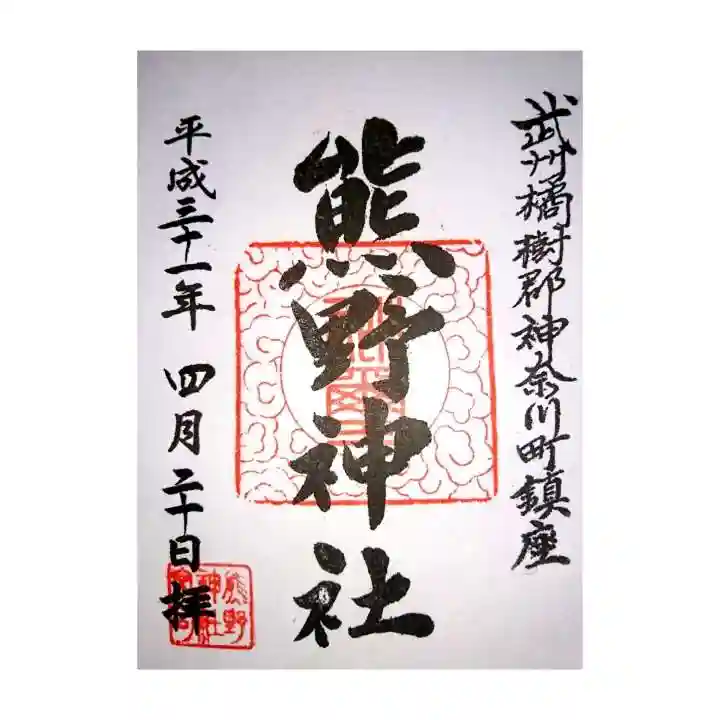 武州橘樹郡神奈川町鎮座
熊野神社
平成三十一年 四月二十日 拝
熊野
神社